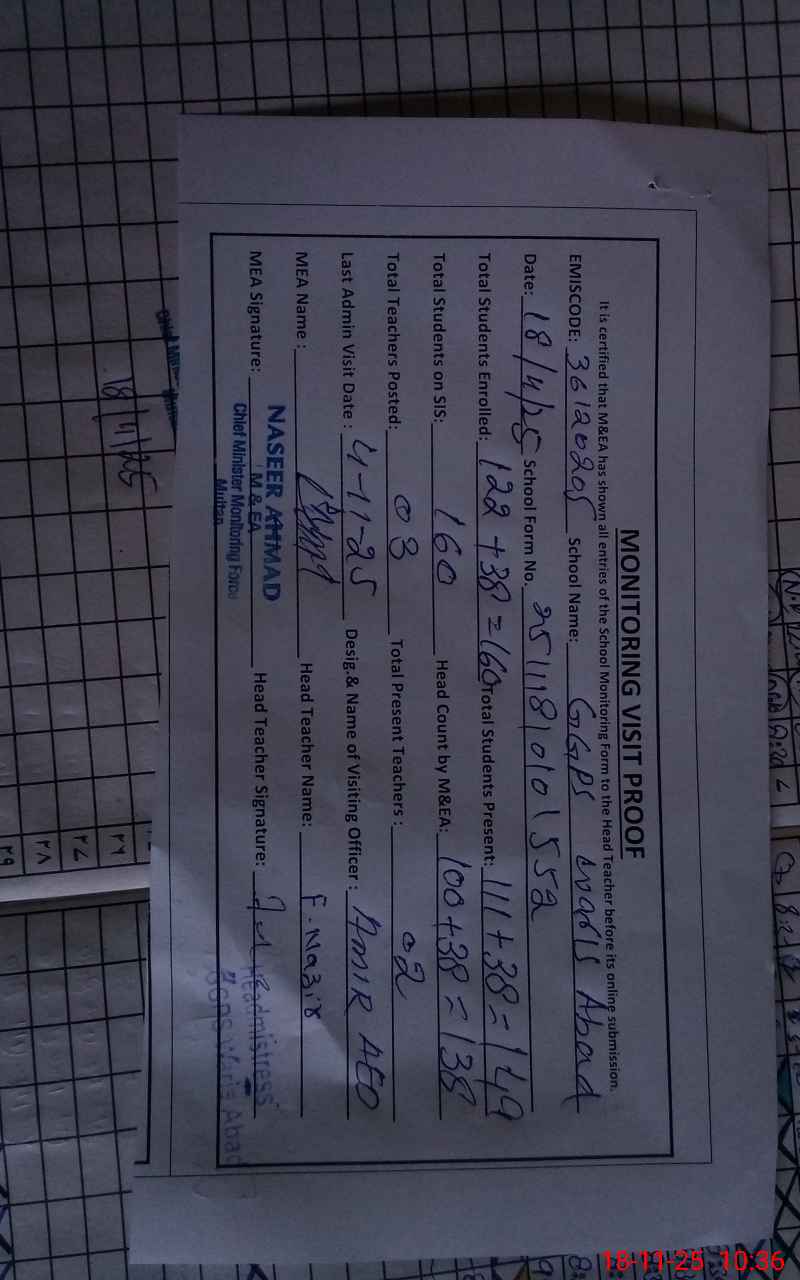 MONITORING VISIT PROOF
It is certified that M&EA has shown all entries of the School Monitoring Form to the Head Teacher before its online submission.
EMISCODE: 36120205 School Name: GGPS Waris Abad
Date: 18/11/25 School Form No. 25111810101552
Total Students Enrolled: 122 + 38 = 160 Total Students Present: 111 + 38 = 149
Total Students on SIS: 160 Head Count by M&EA: 100 + 38 = 138
Total Teachers Posted: 03 Total Present Teachers : 02
Last Admin Visit Date : 4-11-25 Desig.& Name of Visiting Officer : AMIR AEO
MEA Name : Head Teacher Name: F. Nazir
MEA Signature: Head Teacher Signature:
NASEER AHMAD
M & EA
Chief Minister Monitoring Force
Multan
Headmistress
GGPS Waris Abad
18/11/25
٢٦
٢٧
٢٨
٢٩
18-11-25 10:36